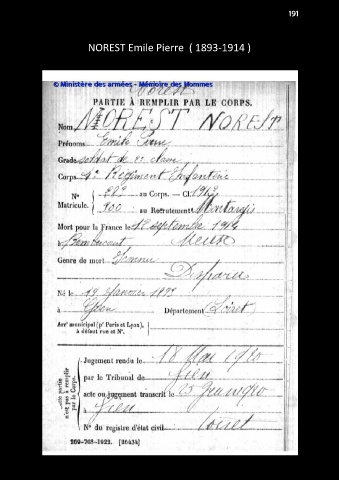 191
NOREST Emile Pierre ( 1893-1914 )
© Ministère des armées - Mémoire des Hommes
Norest
PARTIE À REMPLIR PAR LE CORPS.
Nom NOREST NOREST
Prénoms Emile Pierre
Grade soldat de 2e classe
Corps 4e Régiment Infanterie
N° au Corps. — Cl. 1913
Matricule. 900 au Recrutement Montargis
Mort pour la France le septembre 1914
à Meuse
Genre de mort
Disparu
Né le 19 Janvier 1893
à Gien Département Loiret
Arrt municipal (pr Paris et Lyon),
à défaut rue et N°.
Cette partie
n'est pas à remplir
par le Corps.
Jugement rendu le 18 Mai 1920
par le Tribunal de Gien
acte ou jugement transcrit le 25 Juin 1920
à Gien
N° du registre d'état civil Loiret
209-708-1922. [26434]